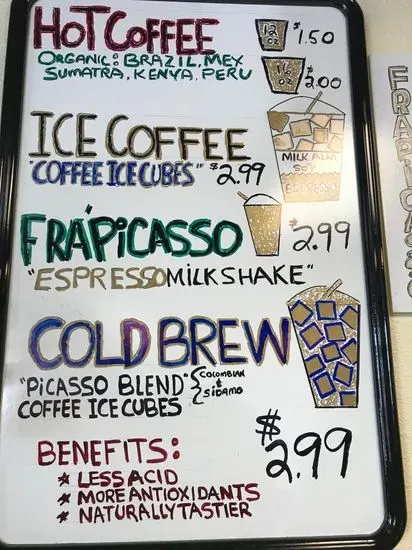 HOT COFFEE
12 OZ $1.50
ORGANIC: BRAZIL, MEX,
SUMATRA, KENYA, PERU
16 OZ $2.00
ICE COFFEE
"COFFEE ICE CUBES" $2.99
MILK ALM
SOY
ESPRESSO
FRA"PICASSO
$2.99
"ESPRESSO MILKSHAKE"
COLD BREW
"PICASSO BLEND" { COLOMBIAN & SIDAMO
COFFEE ICE CUBES
$2.99
BENEFITS:
* LESS ACID
* MORE ANTIOXIDANTS
* NATURALLY TASTIER